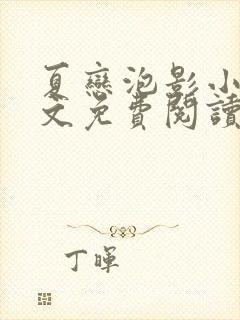 夏戀泡影小
文免費閱讀
丁暉